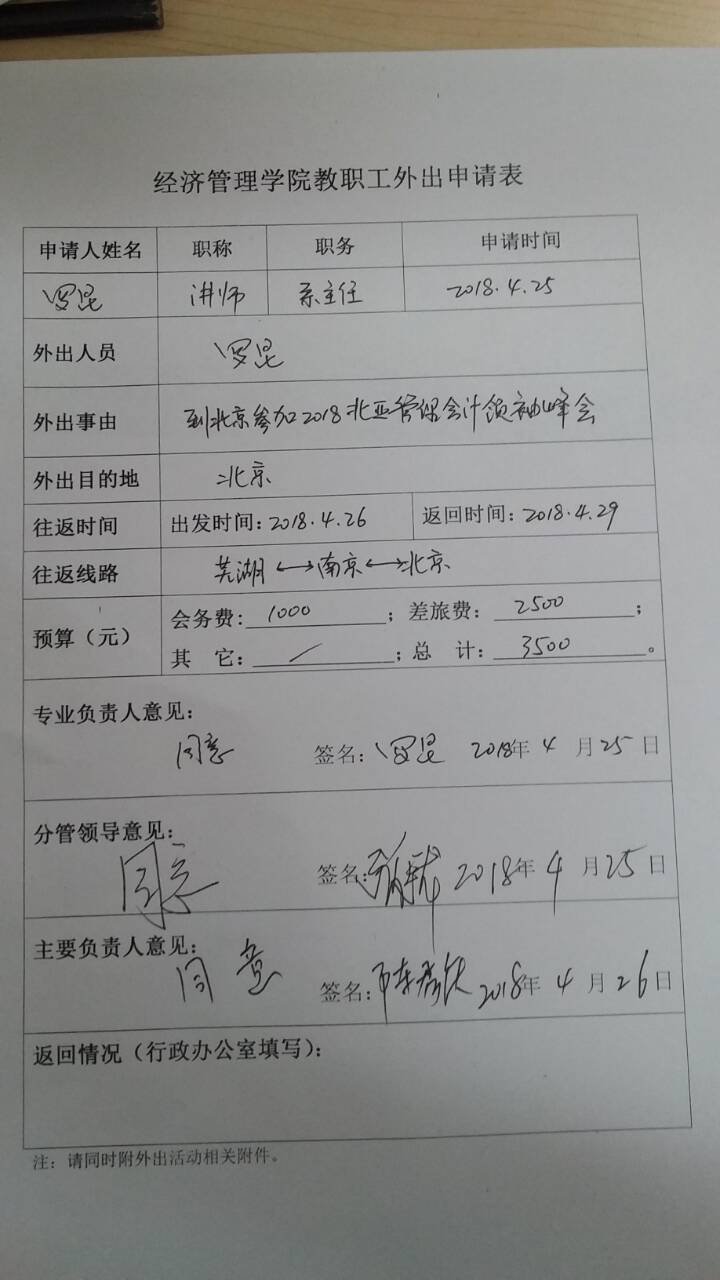 经济管理学院教职工外出申请表
申请人姓名 职称 职务 申请时间
罗昆 讲师 系主任 2018.4.25
外出人员 罗昆
外出事由 到北京参加2018北亚管理会计领袖峰会
外出目的地 北京
往返时间 出发时间:2018.4.26 返回时间:2018.4.29
往返线路 芜湖↔南京↔北京
预算（元） 会务费: 1000 ；差旅费: 2500 ；
其 它: / ；总 计: 3500 。
专业负责人意见:
同意 签名: 罗昆 2018年 4 月 25 日
分管领导意见:
同意 签名: 2018年 4 月 25 日
主要负责人意见:
同意 签名: 2018年 4 月 26 日
返回情况（行政办公室填写）:
注: 请同时附外出活动相关附件。